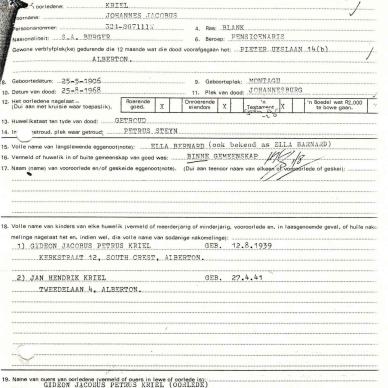 oorledene: KRIEL
ornaam: JOHANNES JACOBUS
ersoonsnommer: 4. Ras: BLANK
Nasionaliteit: S.A. BURGER 6. Beroep: PENSIOENARIS
Gewone verblyfplek(ke) gedurende die 12 maande wat die dood voorafgegaan het: PIETER UESLAAN 14(b)
ALBERTON.
8. Geboortedatum: 25-5-1906 9. Geboorteplek: MONTAGU
10. Datum van dood: 25-8-1968 11. Plek van dood: JOHANNESBURG
12. Het oorledene nagelaat— (Dui aan met kruisie waar toepaslik). Roerende goed. X Onroerende eiendom X 'n Testament X 'n Boedel wat R2,000 te bowe gaan.
13. Huwelikstaat ten tyde van dood: GETROUD
14. In getroud, plek waar getroud: PETRUS STEYN
15. Volle name van langslewende eggenoot(note): ELLA BERNARD (ook bekend as ELLA BARNARD)
16. Vermeld of huwelik in of buite gemeenskap van goed was: BINNE GEMEENSKAP
17. Naam (name) van vooroorlede en/of geskeide eggenoot(note). (Dui aan teenoor naam van elkeen of vooroorlede of geskei):
18. Volle name van kinders van elke huwelik (vermeld of meerderjarig of minderjarig, vooroorlede en, in laasgenoemde geval, of hulle nako-
melinge nagelaat het en, indien wel, die volle name van sodanige nakomelinge):
1) GIDEON JACOBUS PETRUS KRIEL GEB. 12.8.1939
KERKSTRAAT 12, SOUTH CREST, ALBERTON.
2) JAN HENDRIK KRIEL GEB. 27.4.41
TWEEDELAAN 4, ALBERTON.
19. Name van ouers van oorledene (vermeld of ouers in lewe of oorlede is):
GIDEON JACOBUS PETRUS KRIEL (OORLEDE)